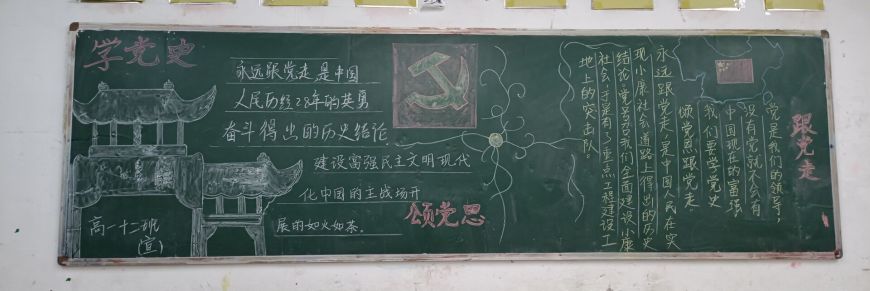 学党史
永远跟党走是中国
人民历经28年的英勇
奋斗得出的历史结论
建设富强民主文明现代
化中国的主战场开
展的如火如荼.
颂党恩
高一十二班
(宣)
永远跟党走是中国人民在实
现小康社会道路上得出的历史
结论,党号召我们全面建设小康
社会,于是有了重点工程建设工
地上的突击队。
党是我们的领导,
没有党就不会有
中国现在的富强
我们要学党史
颂党恩跟党走。
跟党走